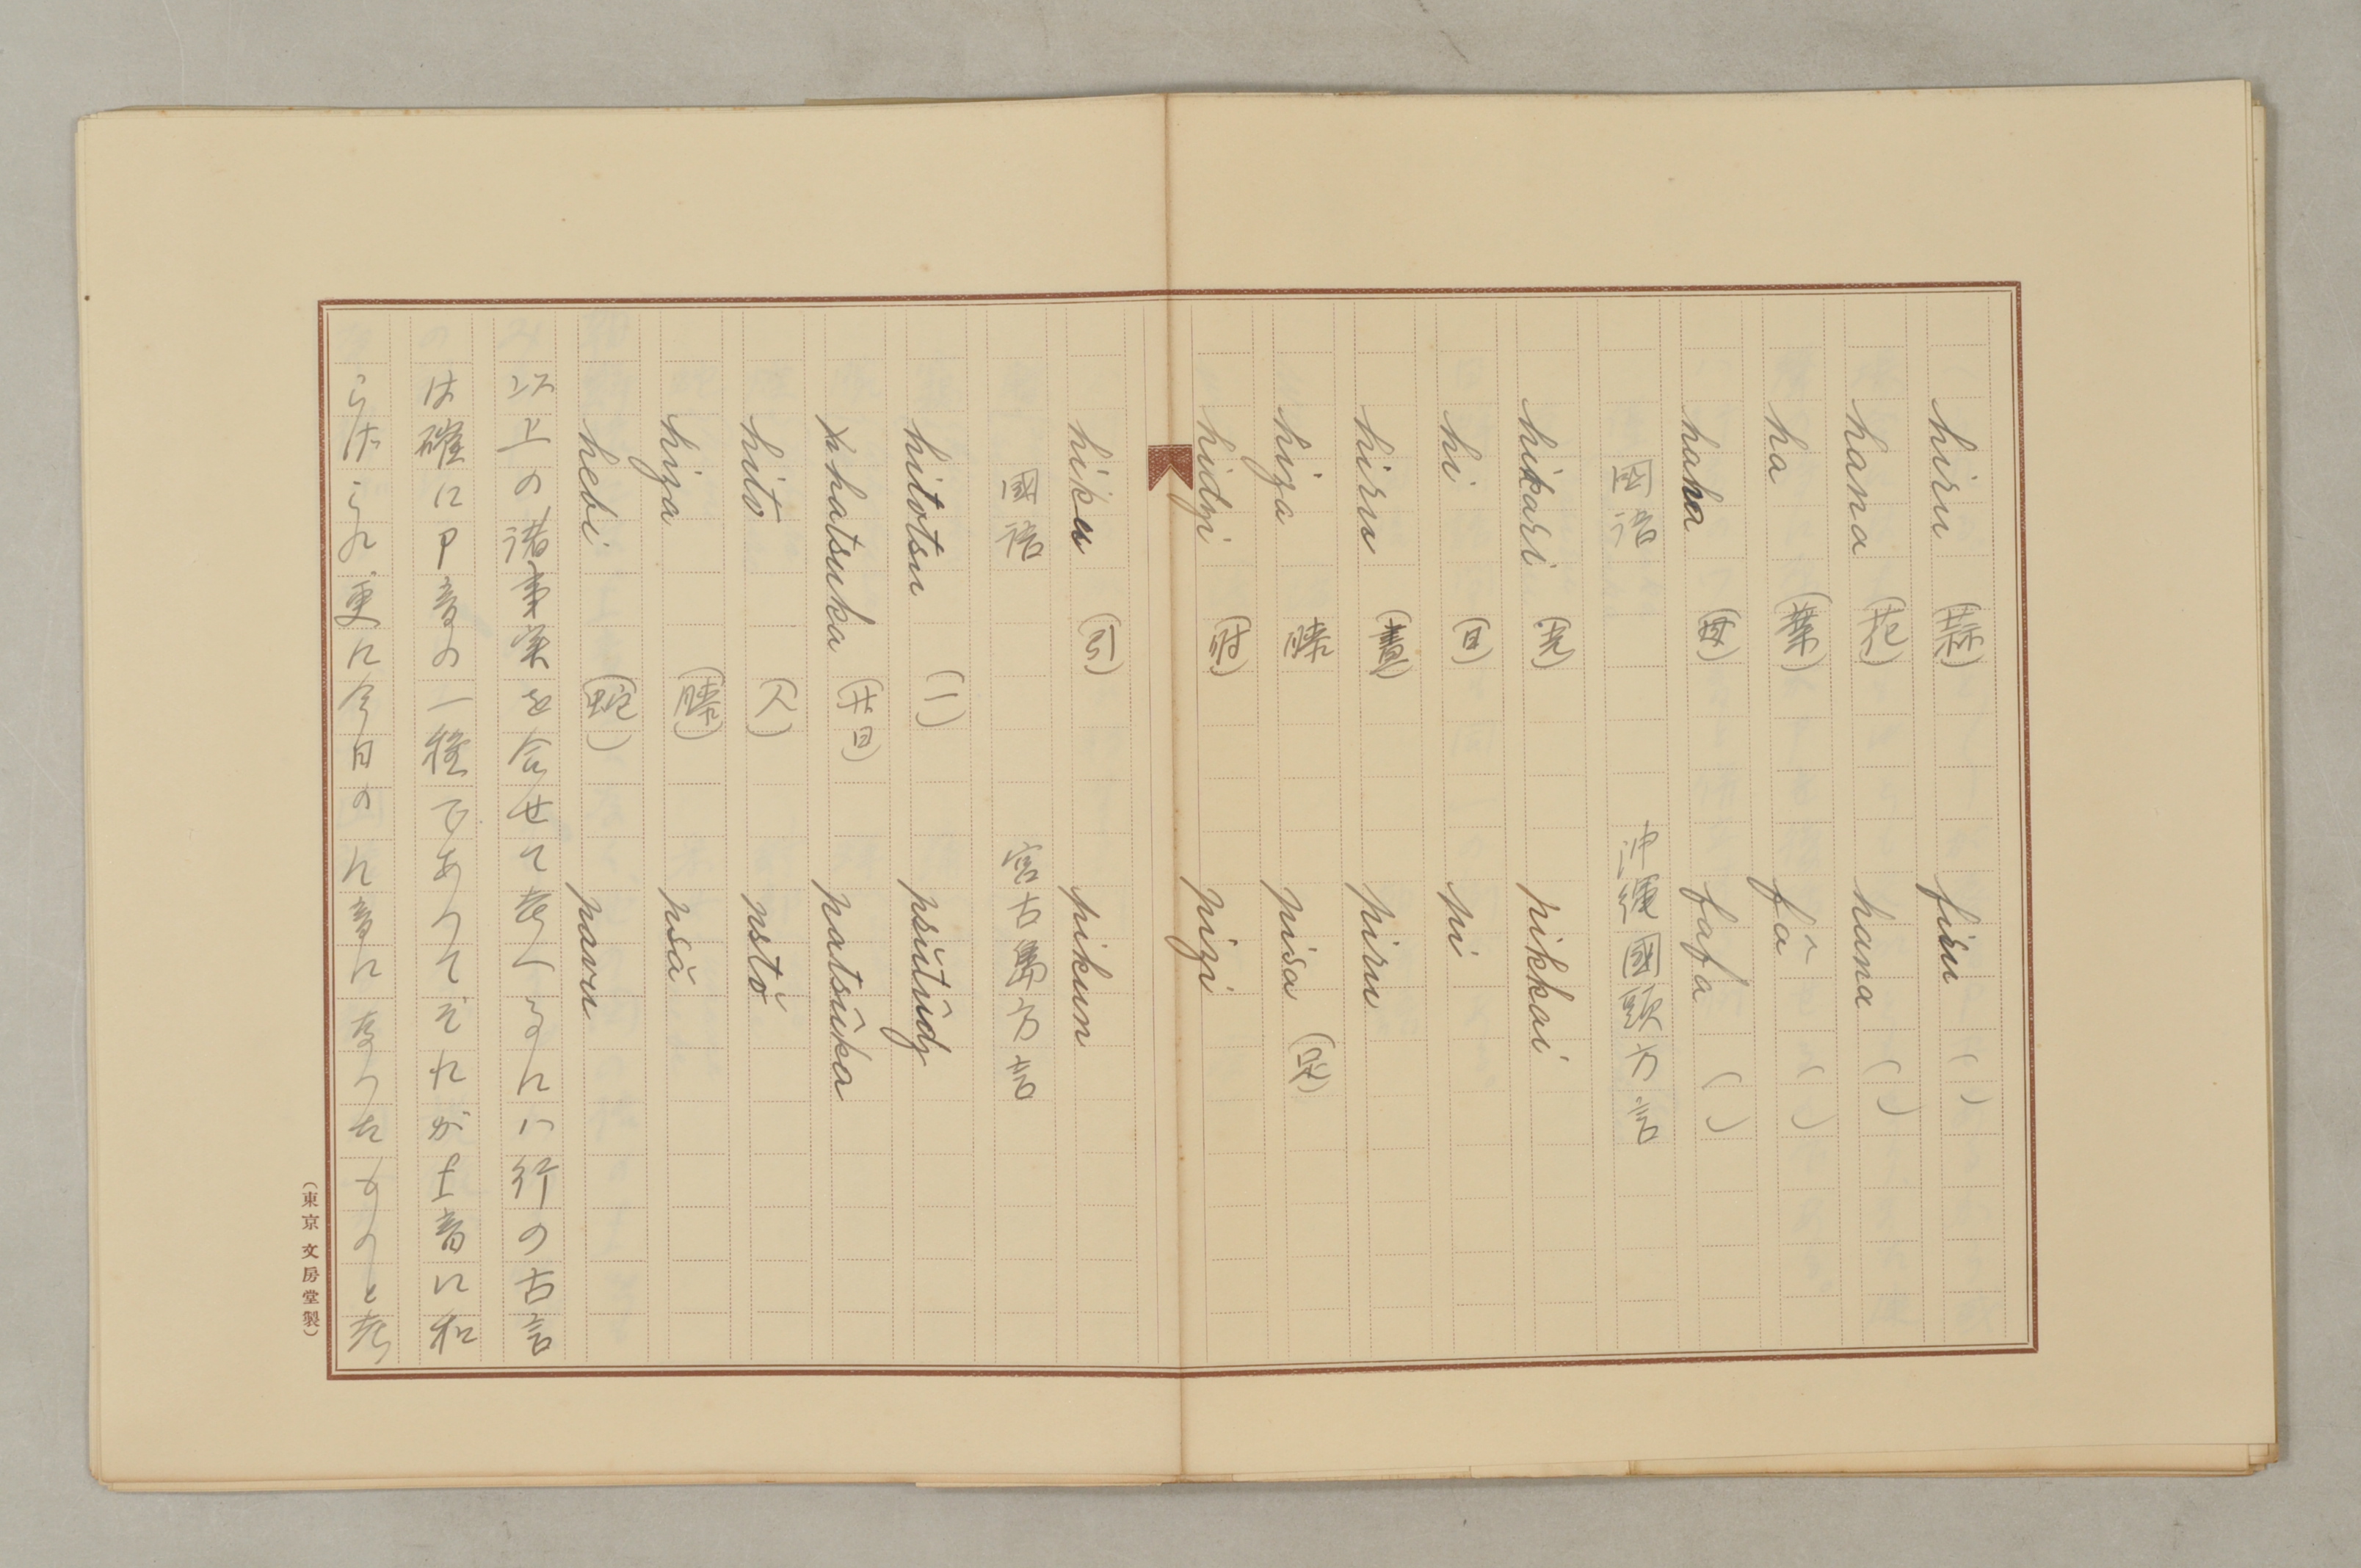 hiru (蒜) firu ( )
hana (花) hana ( )
ha (葉) fâ ( )
haha (母) fafa ( )
國語 沖縄國頭方言
hikari (光) pikkai
hi (日) pi
hiru (晝) piru
hiza 膝 pisa (足)
hidzi (肘) pizi
hiku (引) pikun
國語 宮古島方言
hitotsu (一) psĭtûdz
hatsuka (廿日) patsŭka
hito (人) pstŏ
hiza (膝) psă
hebi (蛇) pavu
以上の諸事実を合せて考へるにハ行の古言
は確にP音の一種であつてそれがf音に和
らげられ更に今日のh音になつたものと考
(東京 文房堂製)